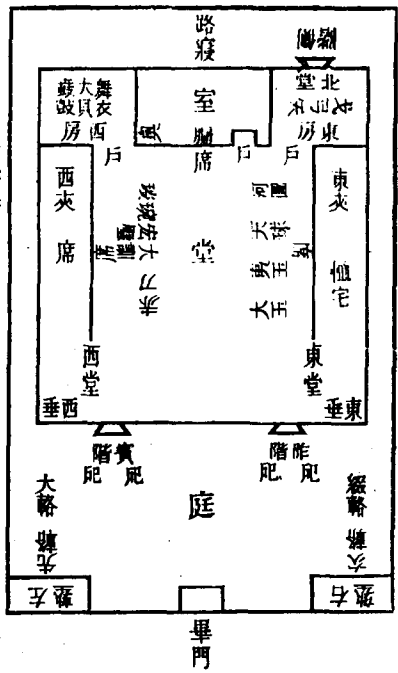 路寢
側階
舞衣
大貝
鼖鼓
西房
室
奧
牖
席
北堂
戈弓矢
東房
戶
戶
戶
西夾
席
東夾
恤宅
琬琰
宏璧
大訓
赤刀
席
堂
河圖
天球
夷玉
大玉
席
西堂
東堂
西垂
東垂
賓階
戺
戺
阼階
戺
戺
庭
大輅
先輅
綴輅
次輅
左塾
右塾
畢門